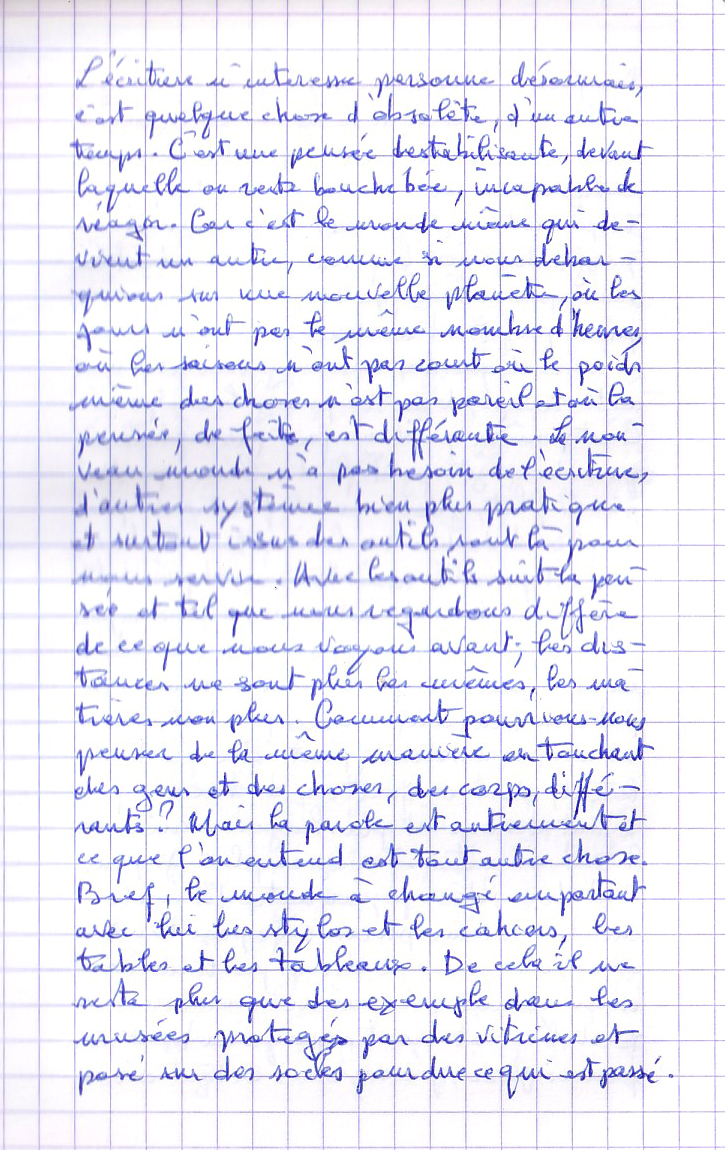 L'écriture n'interesse personne désormais,
c'est quelque chose d'obsolète, d'un autre
temps. C'est une pensée destabilisante, devant
laquelle on reste bouche bée, incapable de
réagir. Car c'est le monde même qui de-
vient un autre, comme si nous debar-
quions sur une nouvelle planète, où les
jours n'ont pas le même nombre d'heures,
où les saisons n'ont pas court où le poids
même des choses n'est pas pareil et où la
pensée, de faite, est différante. Le nou-
veau monde n'a pas besoin de l'écriture,
d'autres système bien plus pratique
et surtout issus des outils sont là pour
nous servir. Avec les outils suit la pen-
sée et tel que nous regardons diffère
de ce que nous voyons avant; les dis-
tances ne sont plus les mêmes, les ma-
tières non plus. Comment pourrions-nous
penser de la même manière en touchant
des gens et des choses, des corps, diffé-
rants? Mais la parole est autrement et
ce que l'on entend est tout autre chose.
Bref, le monde à changé emportant
avec lui les stylos et les cahiers, les
tables et les tableaux. De cela il ne
reste plus que des exemple dans les
musées protegés par des vitrines et
posé sur des socles pour dire ce qui est passé.